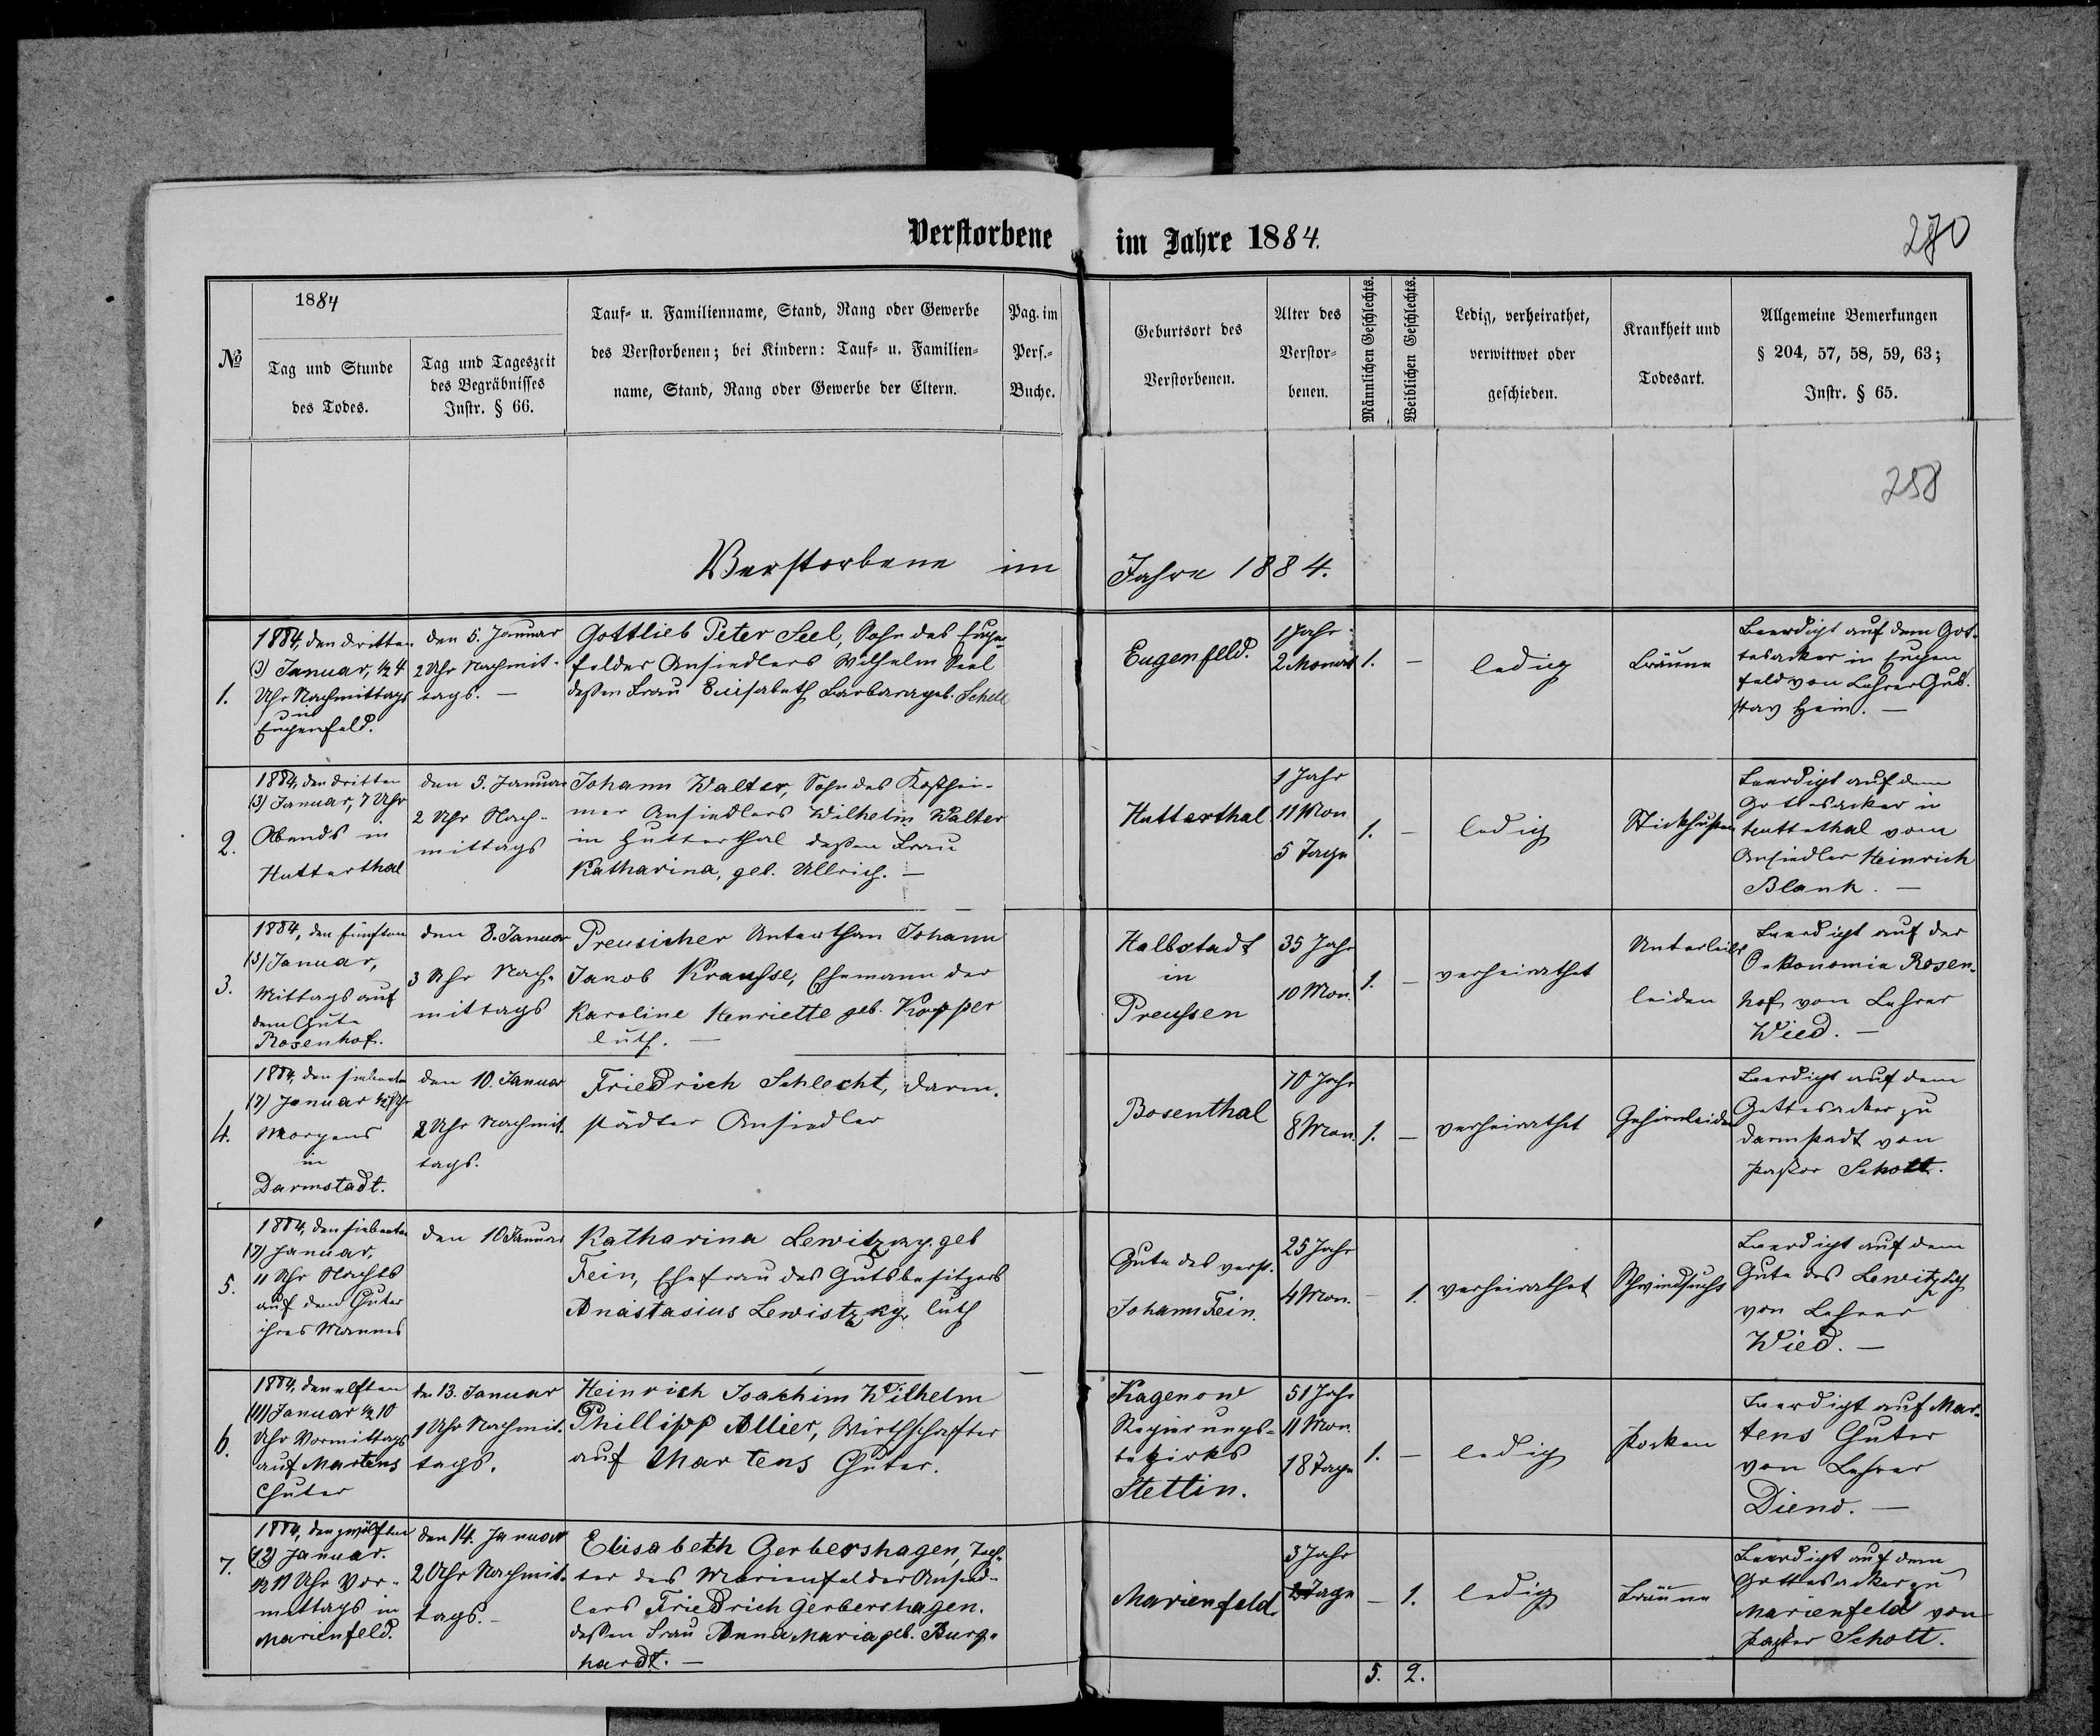 Verstorbene im Jahre 1884.
270
№
1884
Tag und Stunde
des Todes.
Tag und Tageszeit
des Begräbnisses
Instr. § 66.
Tauf- u. Familienname, Stand, Rang oder Gewerbe
des Verstorbenen; bei Kindern: Tauf- u. Familien-
name, Stand, Rang oder Gewerbe der Eltern.
Pag. im
Pers.-
Buche.
Geburtsort des
Verstorbenen.
Alter des
Verstor-
benen.
Männlichen Geschlechts.
Weiblichen Geschlechts.
Ledig, verheirathet,
verwittwet oder
geschieden.
Krankheit und
Todesart.
Allgemeine Bemerkungen
§ 204, 57, 58, 59, 63;
Instr. § 65.
258
Verstorbene im Jahre 1884.
1.
1884, den dritten
(3) Januar, ½ 4
Uhr Nachmittags
in
Eugenfeld.
den 5. Januar
2 Uhr Nachmit-
tags. —
Gottlieb Peter Seel, Sohn des Eugen-
felder Ansiedlers Wilhelm Seel
deßen Frau Elisabeth Barbara geb. Schell
Eugenfeld.
1 Jahr
2 Monat
1.
—
ledig
Bräune
Beerdigt auf dem Got-
tesacker in Eugen
feld von Lehrer Gus-
stav Hein. —
2.
1884, den dritten
(3) Januar, 7 Uhr
Abends in
Hutterthal
den 5. Januar
2 Uhr Nach-
mittags
Johann Walter, Sohn des Kosthei-
mer Ansiedlers Wilhelm Walter
in Hutterthal deßen Frau
Katharina, geb. Ullrich. —
Hutterthal
1 Jahr
11 Mon
5 Tage
1.
—
ledig
Stickhusten
Beerdigt auf dem
Gottesacker in
Huttethal vom
Ansiedler Heinrich
Blank. —
3.
1884, den fünften
(5) Januar,
Mittags auf
dem Gute
Rosenhof.
den 8. Januar
3 Uhr Nach-
mittags
Preusicher Unterthan Johann
Jakob Krauhse, Ehemann der
Karoline Henriette geb. Kopper
luth. —
Halbstadt
in
Preußen
35 Jahr
10 Mon.
1.
—
verheirathet
Unterleibs
leiden
Beerdigt auf der
Oekonomie Rosen-
hof von Lehrer
Wied. —
4.
1884, den siebenten
(7) Januar
Morgens
in
Darmstadt.
den 10. Januar
2 Uhr Nachmit-
tags.
Friedrich Schlecht, Darm-
städter Ansiedler
Rosenthal
70 Jahr
8 Mon.
1.
—
verheirathet
Gehirnleiden
Beerdigt auf dem
Gottesacker zu
Darmstadt von
Pastor Schott.
5.
1884, den siebenten
(7) Januar,
11 Uhr Nachts
auf dem Guter
ihres Mannes
den 10 Januar
Katharina Lewitzky. geb
Fein, Ehefrau des Gutsbesitzers
Anastasius Lewistzky. luth
Gute des verst.
Johann Fein.
25 Jahr
4 Mon.
—
1.
verheirathet
Schwindsucht
Beerdigt auf dem
Gute des
von Lehrer
Wied. —
6.
1884, den elften
(11) Januar ½ 10
Uhr Vormittags
auf Martens
Guter
den 13. Januar
1 Uhr Nachmit-
tags.
Heinrich Joachim Wilhelm
Phillipp Allier, Wirthschafter
auf Martens Guter.
Kagenow
Regierungs-
bezirks
Stettin.
51 Jahr
11 Mon.
18 Tage
1.
—
ledig
Pocken
Beerdigt auf Mar-
tens Guter
von Lehrer
Diend. —
7.
1884, den zwölften
(12) Januar.
½ 11 Uhr Vor-
mittags in
Marienfeld.
den 14. Januar
2 Uhr Nachmit-
tags. —
Elisabeth Gerbershagen, Toch-
ter des Marienfelder Ansied-
lers Friedrich Gerbershagen.
deßen Frau Anna Maria geb. Burg-
hardt. —
Marienfeld.
3 Jahr
Tage
—
1.
ledig
Bräune
Beerdigt auf dem
Gottesacker zu
Marienfeld von
Pastor Schott.
5. 2.